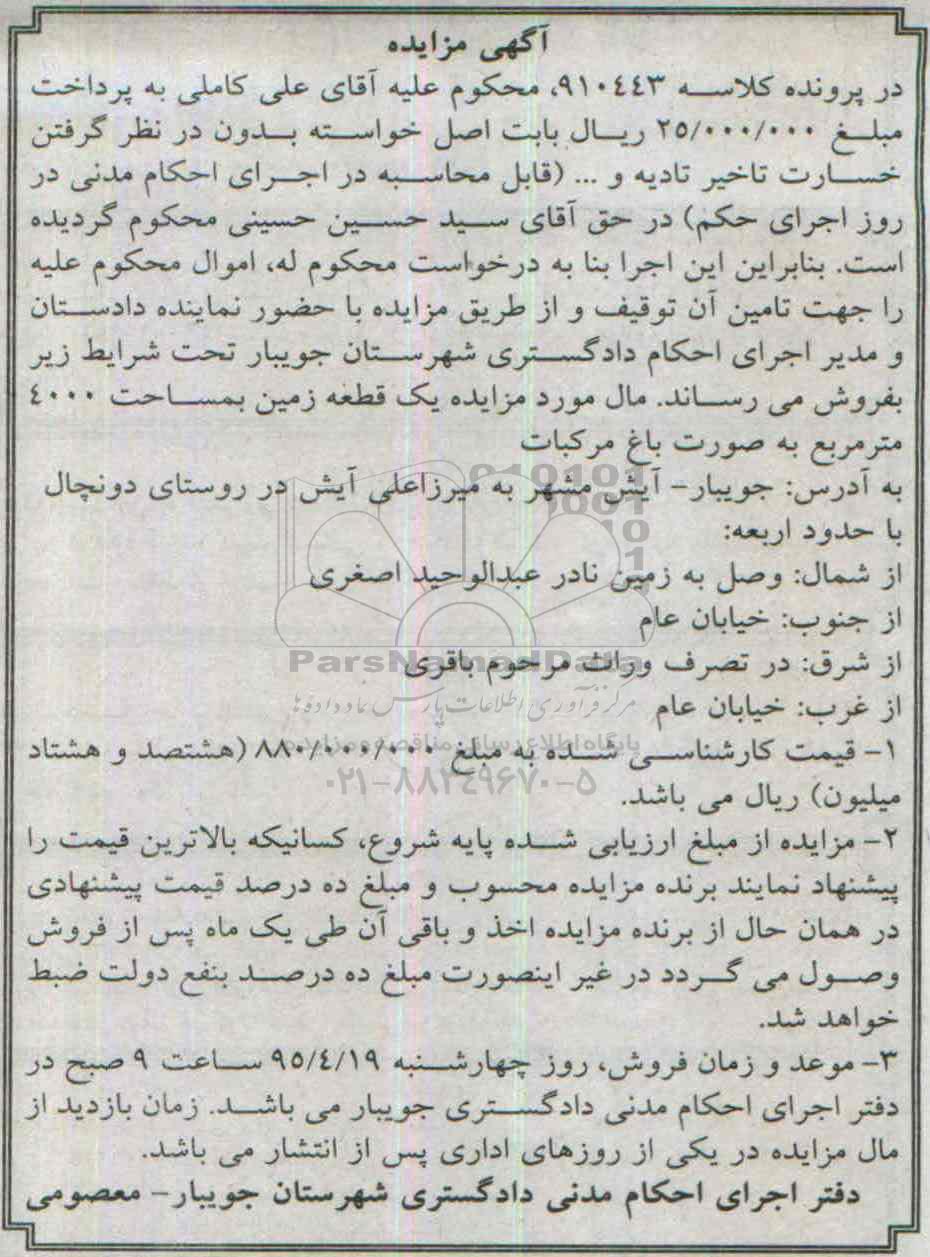 آگهی مزایده
در پرونده کلاسه ۹۱۰٤٤۳، محکوم علیه آقای علی کاملی به پرداخت
مبلغ ۲۵/۰۰۰/۰۰۰ ریال بابت اصل خواسته بدون در نظر گرفتن
خسارت تاخیر تادیه و ... (قابل محاسبه در اجرای احکام مدنی در
روز اجرای حکم) در حق آقای سید حسین حسینی محکوم گردیده
است. بنابراین این اجرا بنا به درخواست محکوم له، اموال محکوم علیه
را جهت تامین آن توقیف و از طریق مزایده با حضور نماینده دادستان
و مدیر اجرای احکام دادگستری شهرستان جویبار تحت شرایط زیر
بفروش می رساند. مال مورد مزایده یک قطعه زمین بمساحت ٤۰۰۰
مترمربع به صورت باغ مرکبات
به آدرس: جویبار- آیش مشهر به میرزاعلی آیش در روستای دونچال
با حدود اربعه:
از شمال: وصل به زمین نادر عبدالوحید اصغری
از جنوب: خیابان عام
ParsNamadData
از شرق: در تصرف وراث مرحوم باقری
مرکز فرآوری اطلاعات پارس نماد داده ها
از غرب: خیابان عام
پایگاه اطلاع رسانی مناقصه و مزایده
۱- قیمت کارشناسی شده به مبلغ ۸۸۰/۰۰۰/۰۰۰ (هشتصد و هشتاد
۰۲۱-۸۸۳٤۹۶۷۰-۵
میلیون) ریال می باشد.
۲- مزایده از مبلغ ارزیابی شده پایه شروع، کسانیکه بالاترین قیمت را
پیشنهاد نمایند برنده مزایده محسوب و مبلغ ده درصد قیمت پیشنهادی
در همان حال از برنده مزایده اخذ و باقی آن طی یک ماه پس از فروش
وصول می گردد در غیر اینصورت مبلغ ده درصد بنفع دولت ضبط
خواهد شد.
۳- موعد و زمان فروش، روز چهارشنبه ۹۵/٤/۱۹ ساعت ۹ صبح در
دفتر اجرای احکام مدنی دادگستری جویبار می باشد. زمان بازدید از
مال مزایده در یکی از روزهای اداری پس از انتشار می باشد.
دفتر اجرای احکام مدنی دادگستری شهرستان جویبار- معصومی